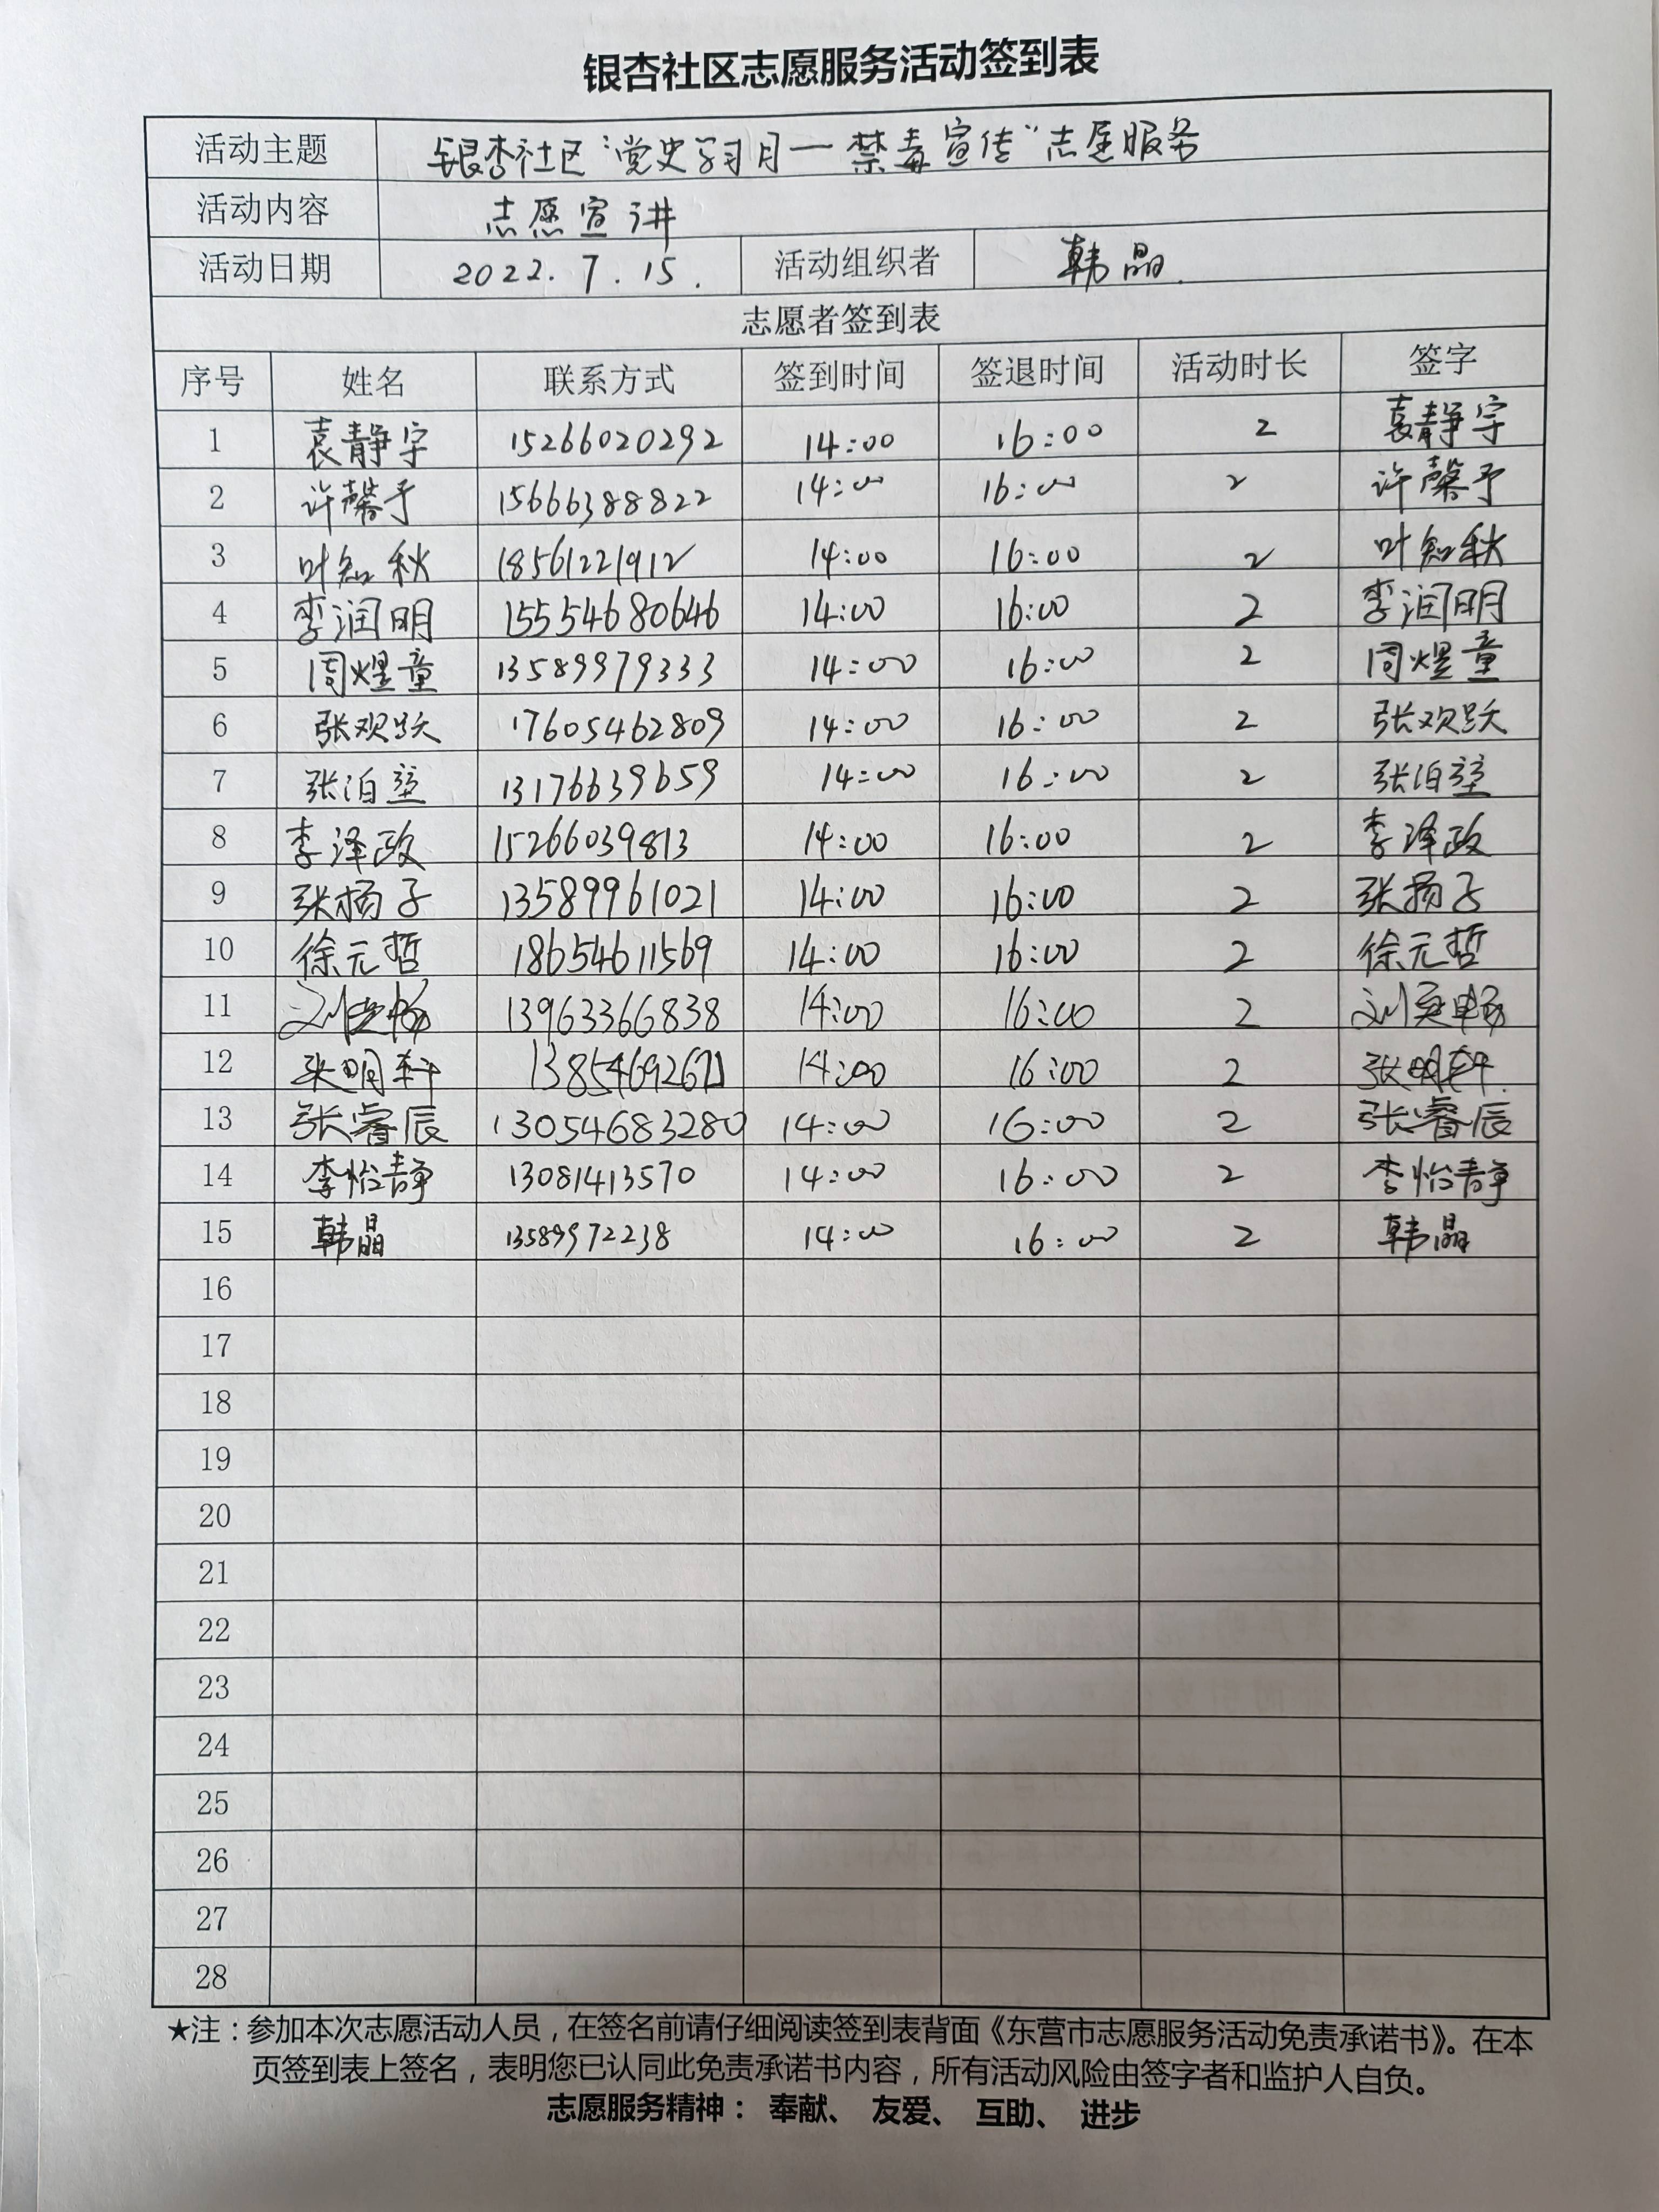 银杏社区志愿服务活动签到表
活动主题 银杏社区“党史学习月—禁毒宣传”志愿服务
活动内容 志愿宣讲
活动日期 2022.7.15. 活动组织者 韩晶.
志愿者签到表
序号 姓名 联系方式 签到时间 签退时间 活动时长 签字
1 袁静宇 15266020292 14:00 16:00 2 袁静宇
2 许馨予 15666388822 14:00 16:00 2 许馨予
3 叶知秋 18561221912 14:00 16:00 2 叶知秋
4 李润明 15554680646 14:00 16:00 2 李润明
5 周煜童 13589979333 14:00 16:00 2 周煜童
6 张欢跃 17605462809 14:00 16:00 2 张欢跃
7 张泊 13176639659 14:00 16:00 2 张泊
8 李泽政 15266039813 14:00 16:00 2 李泽政
9 张杨子 13589961021 14:00 16:00 2 张扬子
10 徐元哲 18654611569 14:00 16:00 2 徐元哲
11 刘奕畅 13963366838 14:00 16:00 2 刘奕畅
12 张明轩 14:00 16:00 2 张明轩.
13 张睿辰 13054683280 14:00 16:00 2 张睿辰
14 李怡静 13081413570 14:00 16:00 2 李怡静
15 韩晶 13589972238 14:00 16:00 2 韩晶
16
17
18
19
20
21
22
23
24
25
26
27
28
★注：参加本次志愿活动人员，在签名前请仔细阅读签到表背面《东营市志愿服务活动免责承诺书》。在本
页签到表上签名，表明您已认同此免责承诺书内容，所有活动风险由签字者和监护人自负。
志愿服务精神： 奉献、 友爱、 互助、 进步